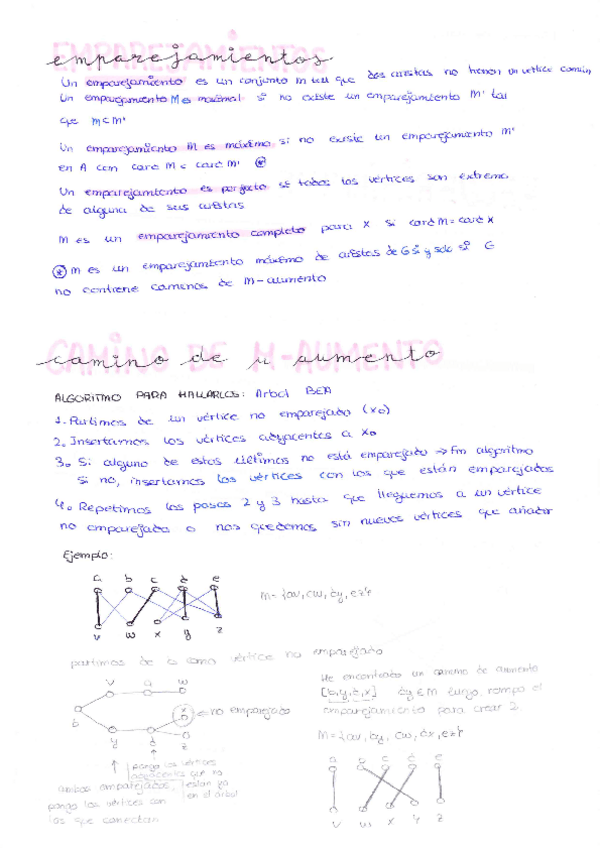 EMPAREJAMIENTOS
emparejamientos
Un emparejamiento es un conjunto M tal que dos aristas no tienen un vértice común
Un emparejamiento M es maximal si no existe un emparejamiento M' tal
que M⊂M'
Un emparejamiento M es máximo si no existe un emparejamiento M'
en A con card M < card M' ⊛
Un emparejamiento es perfecto si todos los vértices son extremo
de alguna de sus aristas
M es un emparejamiento completo para X si card M = card X
⊛ M es un emparejamiento máximo de aristas de G si y solo si G
no contiene caminos de M-aumento
CAMINO DE M-AUMENTO
camino de M aumento
ALGORITMO PARA HALLARLOS: Arbol BEA
1. Partimos de un vértice no emparejado (x₀)
2. Insertamos los vértices adyacentes a x₀
3. Si alguno de estos últimos no está emparejado → fin algoritmo
si no, insertamos los vértices con los que están emparejados
4. Repetimos los pasos 2 y 3 hasta que lleguemos a un vértice
no emparejado o nos quedemos sin nuevos vértices que añadir
Ejemplo:
a b c d e
v w x y z
M={av, cw, dy, ez}
partimos de b como vértice no emparejado
v a w
b
x ← no emparejado
y d z
↑ ↑
pongo los vértices
adyacentes que no
están ya
en el árbol
ambos emparejados,
pongo los vértices con
los que conectan
He encontrado un camino de aumento
[b,y,d,x] dy∈M luego rompo el
emparejamiento para crear 2.
M={av, by, cw, dx, ez}
v w x y z